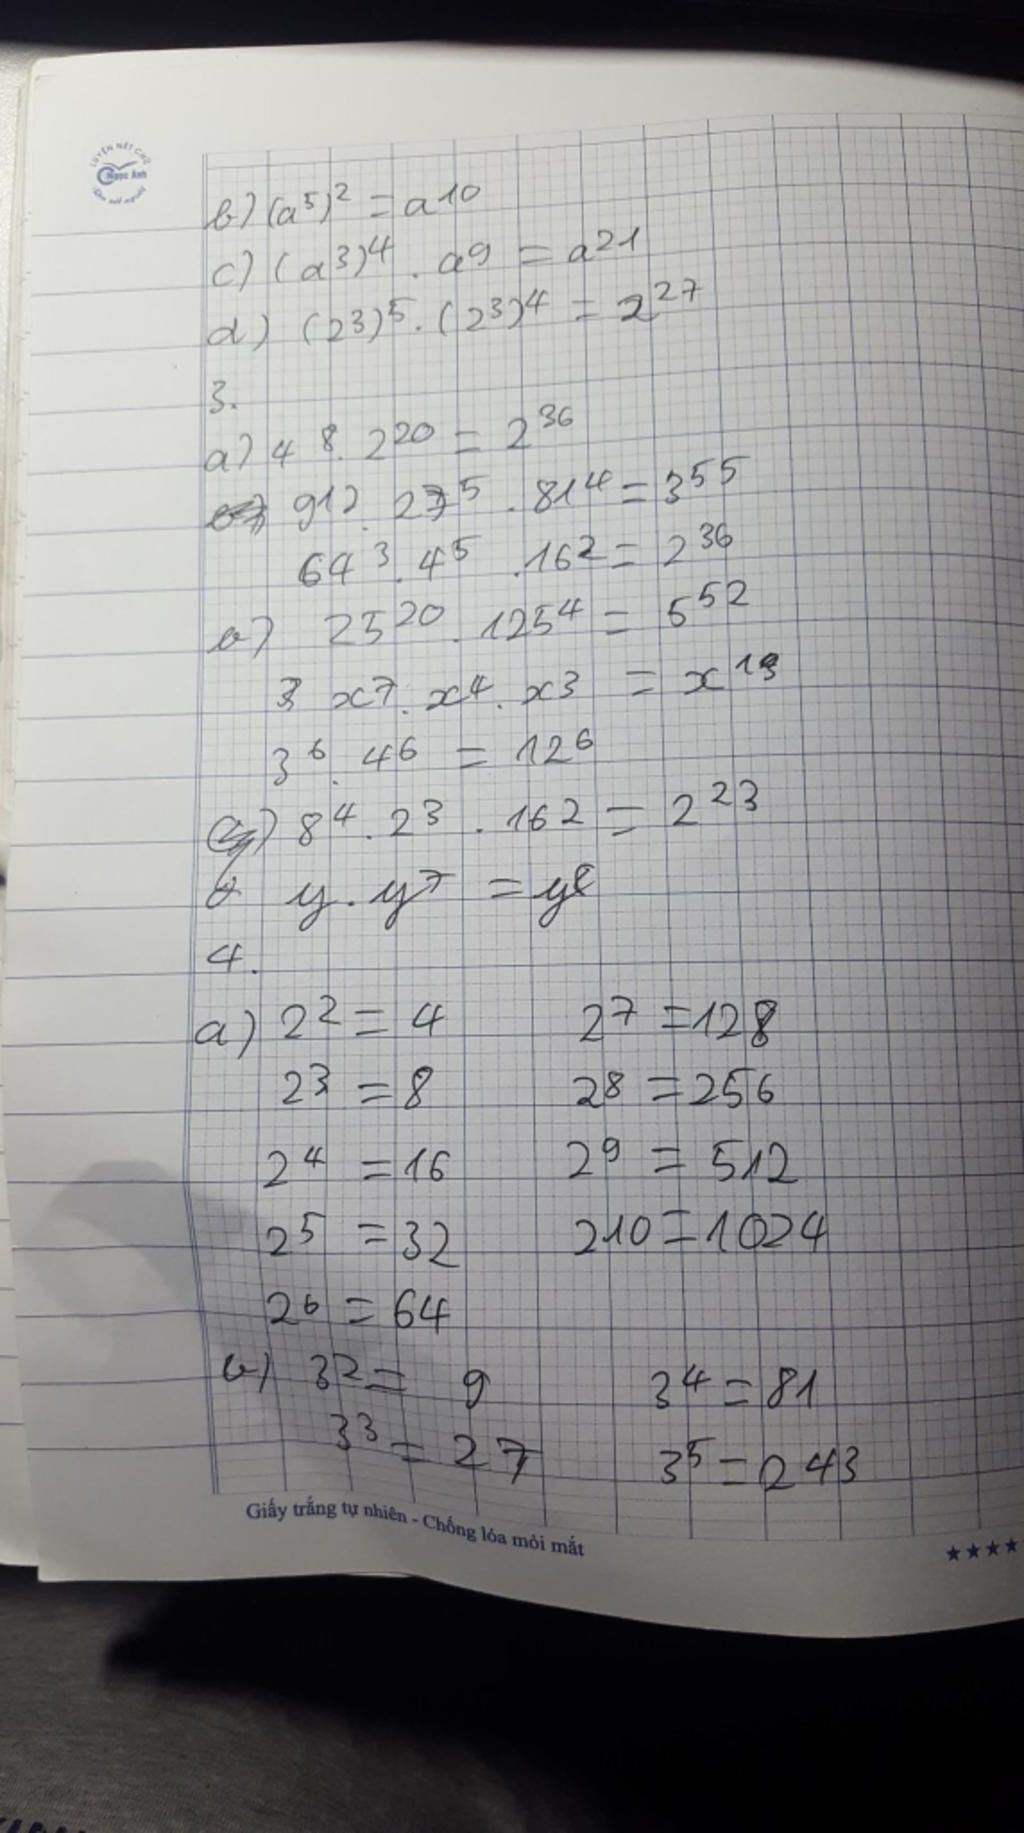 LUYỆN NÉT CHỮ
Ngọc Anh
b) (a⁵)² = a¹⁰
c) (a³)⁴ . a⁹ = a²¹
d) (2³)⁵ . (2³)⁴ = 2²⁷
3.
a) 4⁸ . 2²⁰ = 2³⁶
9¹² . 27⁵ . 81⁴ = 3⁵⁵
64³ . 4⁵ . 16² = 2³⁶
b) 25²⁰ . 125⁴ = 5⁵²
x⁷ . x⁴ . x³ =
3⁶ . 4⁶ = 12⁶
8⁴ . 2³ . 16² = 2²³
y . y⁷ = y⁸
4.
a) 2² = 4 2⁷ = 128
2³ = 8 2⁸ = 256
2⁴ = 16 2⁹ = 512
2⁵ = 32 2¹⁰ = 1024
2⁶ = 64
b) 3² = 9 3⁴ = 81
3³ = 27 3⁵ = 243
Giấy trắng tự nhiên - Chống lóa mỏi mắt